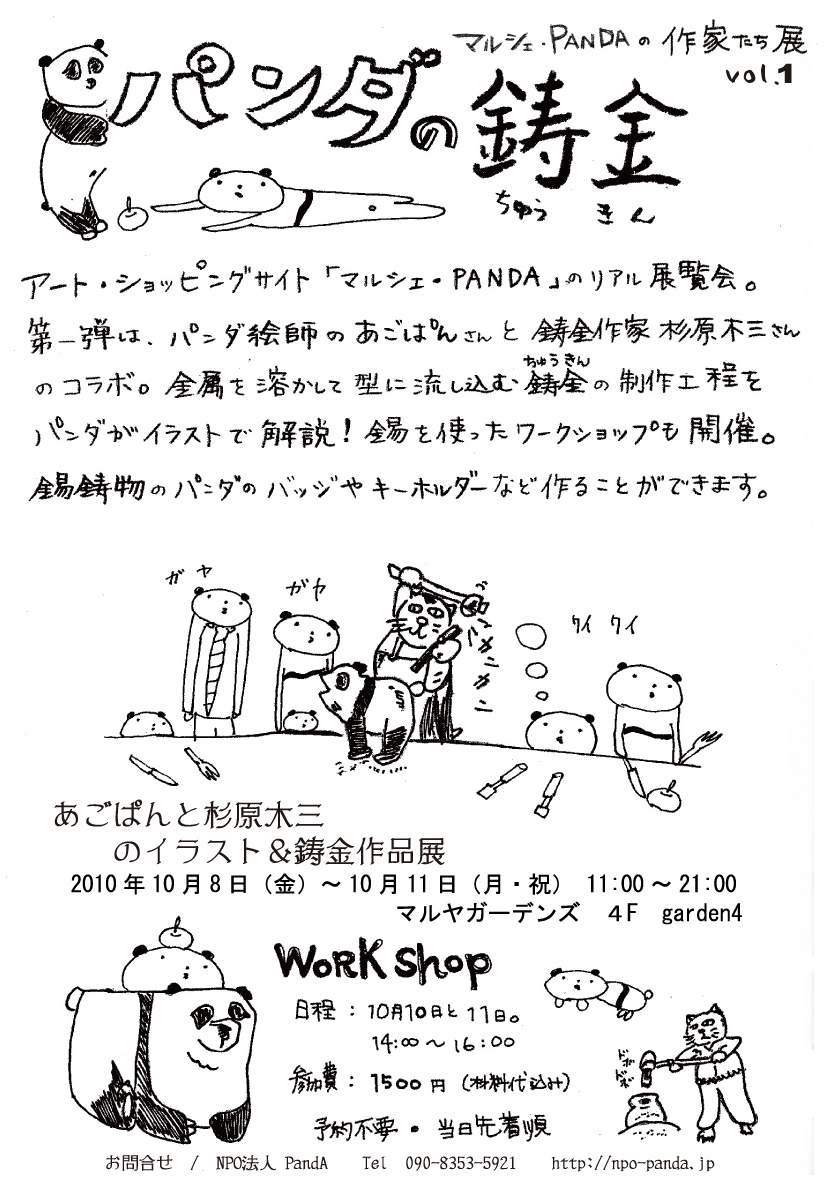 マルシェ・PANDAの作家たち展
vol.1
パンダの鋳金
ちゅうきん
アート・ショッピングサイト「マルシェ・PANDA」のリアル展覧会。
第一弾は、パンダ絵師のあごぱんさんと鋳金作家杉原木三さん
のコラボ。金属を溶かして型に流し込む鋳金の制作工程を
ちゅうきん
パンダがイラストで解説！錫を使ったワークショップも開催。
錫鋳物のパンダのバッジやキーホルダーなど作ることができます。
ガヤ
ガヤ
ワイワイ
あごぱんと杉原木三
のイラスト＆鋳金作品展
2010年10月8日（金）～10月11日（月・祝） 11:00～21:00
マルヤガーデンズ 4F garden4
WORK shop
日程：10月10日と11日。
14:00～16:00
参加費：1500円（材料代込み）
予約不要・当日先着順
お問合せ / NPO法人 PandA Tel 090-8353-5921 http://npo-panda.jp